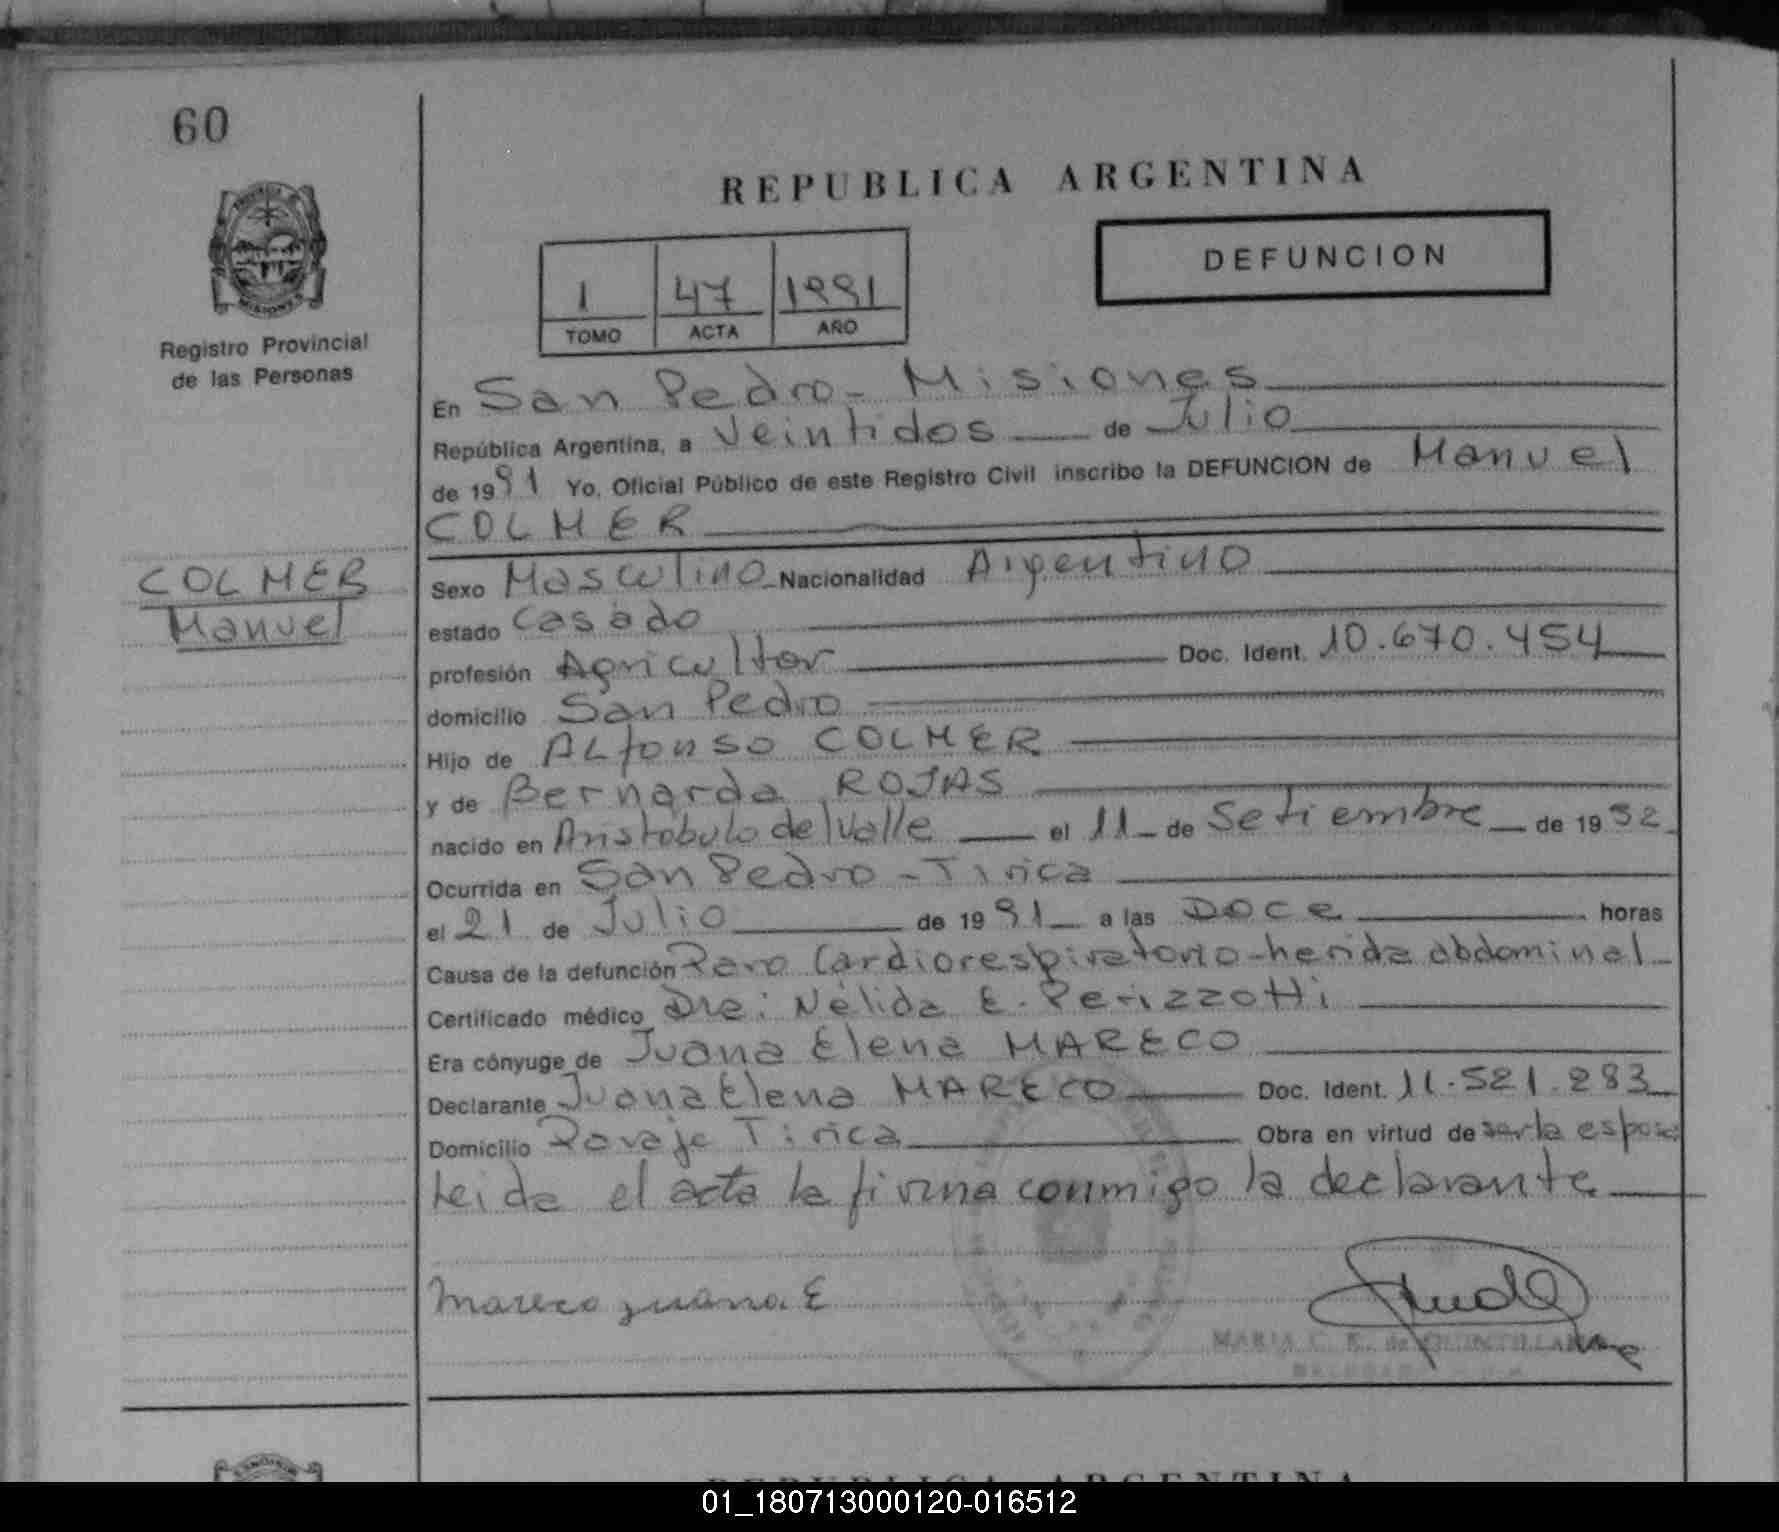 60
REPUBLICA ARGENTINA
DEFUNCION
1 47 1991
TOMO ACTA AÑO
Registro Provincial
de las Personas
En San Pedro - Misiones
República Argentina, a Veintidos de Julio
de 1991 Yo, Oficial Público de este Registro Civil inscribo la DEFUNCION de Manuel
COLMER
COLMER
Manuel
Sexo Masculino Nacionalidad Argentino
estado Casado
profesión Agricultor Doc. Ident. 10.670.454
domicilio San Pedro
Hijo de Alfonso COLMER
y de Bernarda ROJAS
nacido en Aristobulo del Valle el 11 de Setiembre de 1952
Ocurrida en San Pedro - Tirica
el 21 de Julio de 1991 a las Doce horas
Causa de la defunción Paro Cardiorespiratorio - herida abdominal
Certificado médico Dra: Nélida E. Perizzotti
Era cónyuge de Juana Elena MARECO
Declarante Juana Elena MARECO Doc. Ident. 11.521.283
Domicilio Paraje Tirica Obra en virtud de ser la esposa
Leida el acta la firma conmigo la declarante
Mareco Juana E
MARIA C. K. de QUINTILLANA
REPUBLICA ARGENTINA
01_180713000120-016512